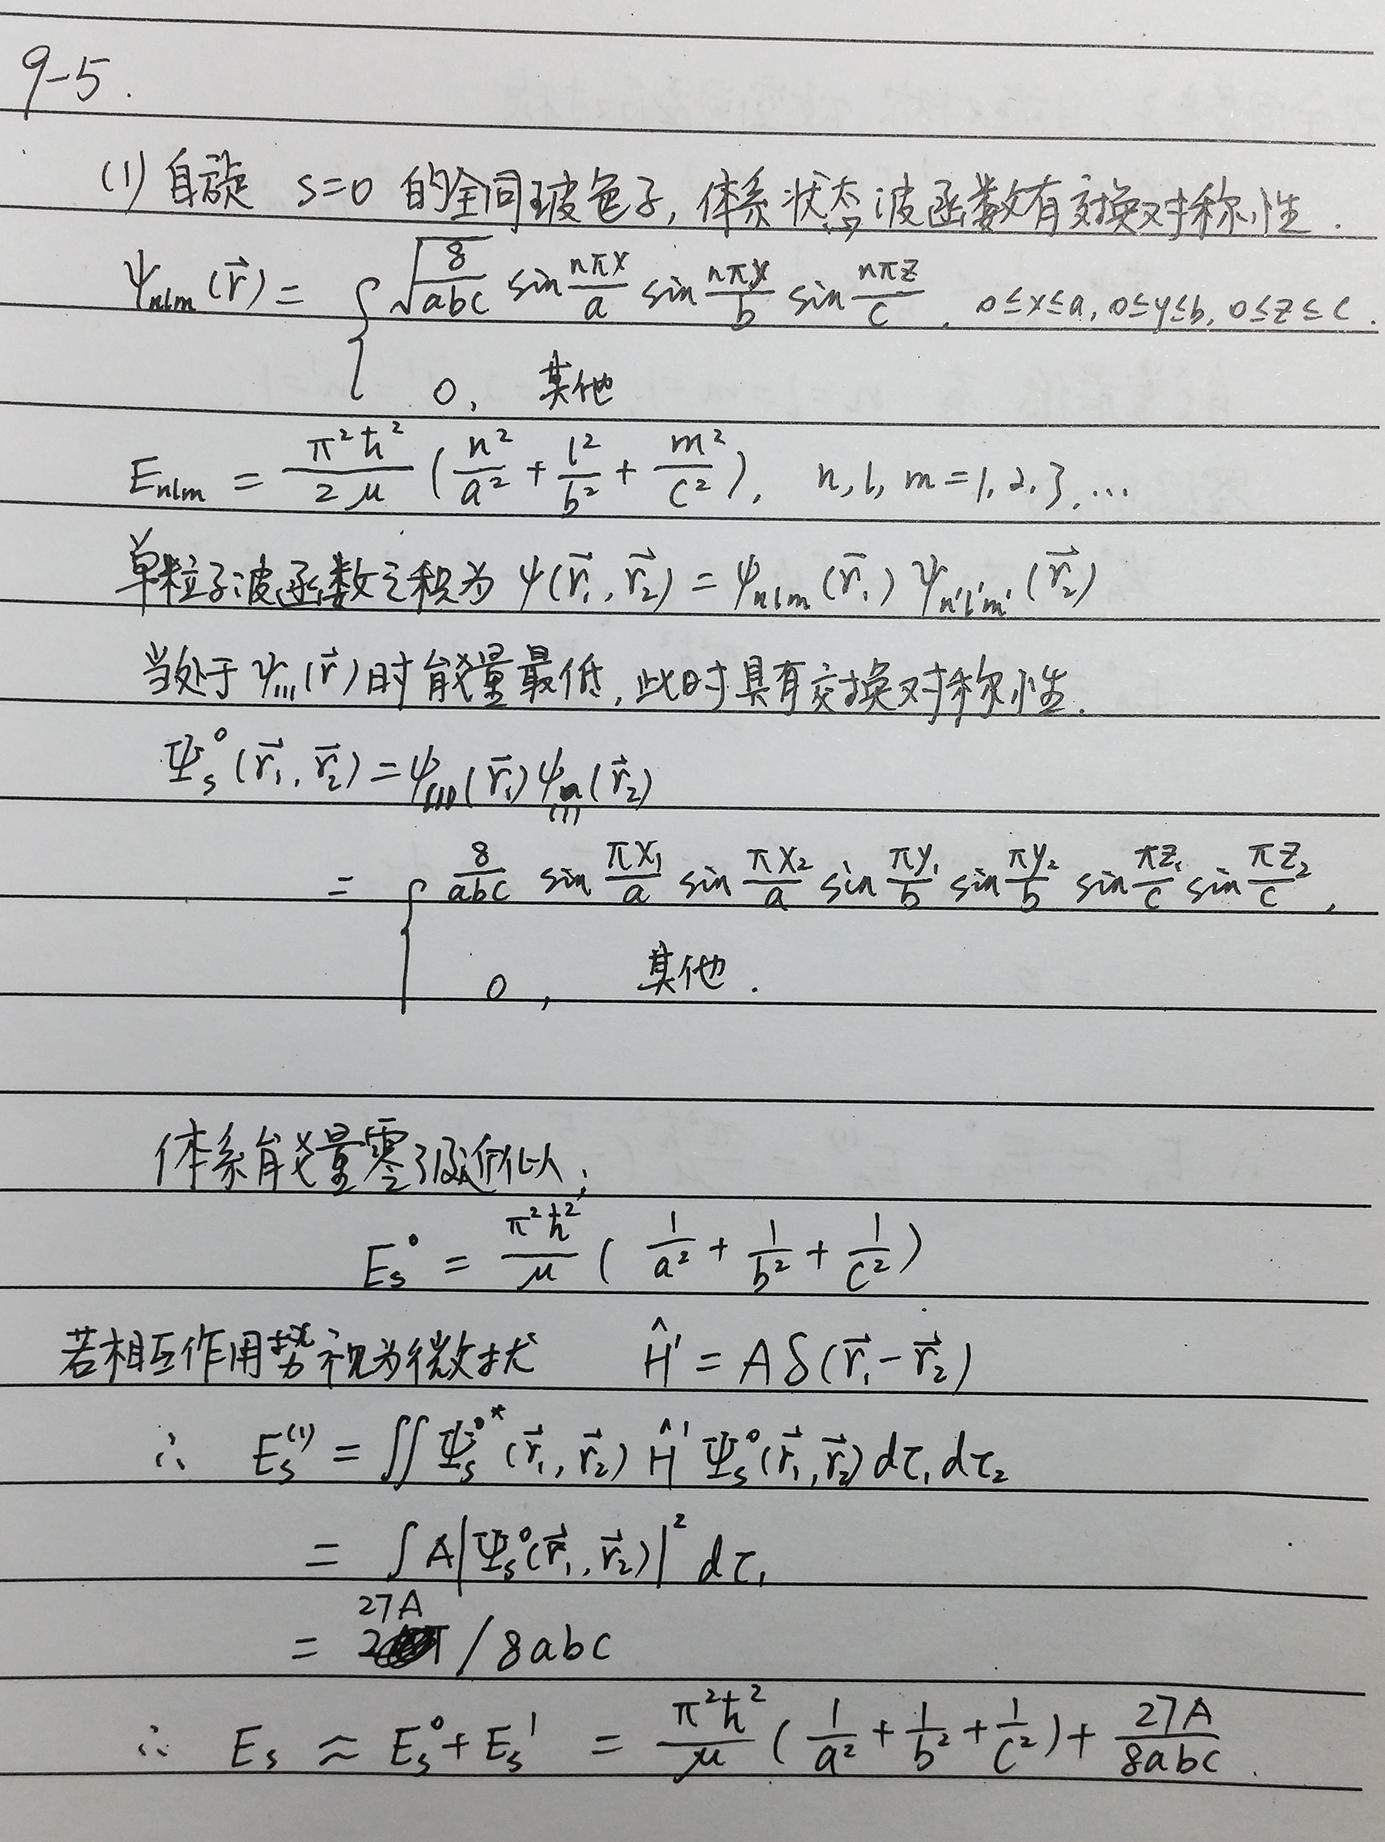 9-5.
(1) 自旋 s=0 的全同玻色子, 体系状态波函数有交换对称性.
ψₙₗₘ(r⃗) = { √(8/abc) sin nπx/a sin nπy/b sin nπz/c, 0≤x≤a, 0≤y≤b, 0≤z≤c.
0, 其他
Eₙₗₘ = π²ħ²/2μ (n²/a² + l²/b² + m²/c²), n, l, m = 1, 2, 3, ...
单粒子波函数之积为 ψ(r⃗₁, r⃗₂) = ψₙₗₘ(r⃗₁) ψₙ'ₗ'ₘ'(r⃗₂)
当处于 ψ₁₁₁(r⃗) 时能量最低, 此时具有交换对称性.
Ψₛ⁰(r⃗₁, r⃗₂) = ψ₁₁₁(r⃗₁) ψ₁₁₁(r⃗₂)
= { 8/abc sin πx₁/a sin πx₂/a sin πy₁/b sin πy₂/b sin πz₁/c sin πz₂/c,
0, 其他.
体系能量零级近似:
Eₛ⁰ = π²ħ²/μ (1/a² + 1/b² + 1/c²)
若相互作用势视为微扰 Ĥ' = Aδ(r⃗₁ - r⃗₂)
∴ Eₛ⁽¹⁾ = ∬ Ψₛ⁰*(r⃗₁, r⃗₂) Ĥ' Ψₛ⁰(r⃗₁, r⃗₂) dτ₁ dτ₂
= ∫ A|Ψₛ⁰(r⃗₁, r⃗₂)|² dτ₁
= 27A / 8abc
∴ Eₛ ≈ Eₛ⁰ + Eₛ¹ = π²ħ²/μ (1/a² + 1/b² + 1/c²) + 27A/8abc.